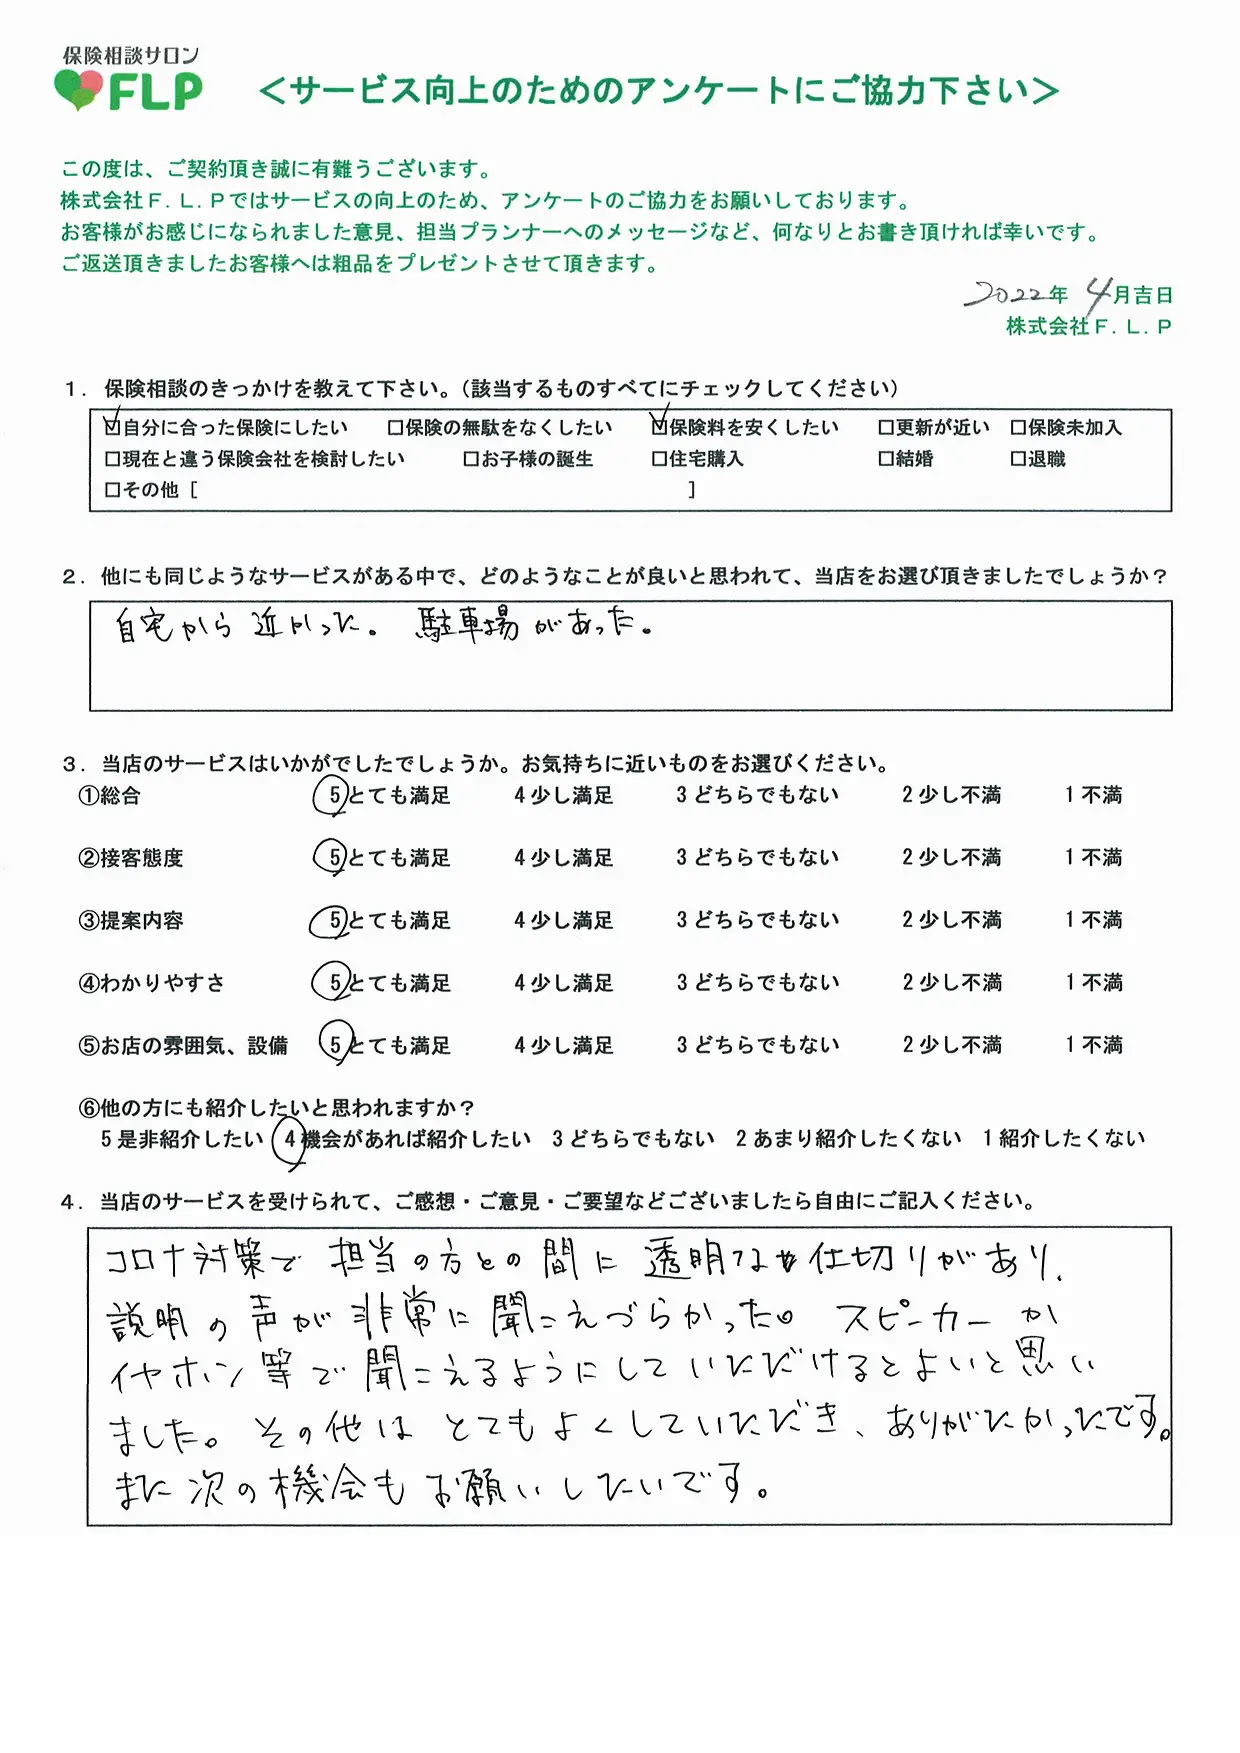 保険相談サロン
FLP
＜サービス向上のためのアンケートにご協力下さい＞
この度は、ご契約頂き誠に有難うございます。
株式会社Ｆ.Ｌ.Ｐではサービスの向上のため、アンケートのご協力をお願いしております。
お客様がお感じになられました意見、担当プランナーへのメッセージなど、何なりとお書き頂ければ幸いです。
ご返送頂きましたお客様へは粗品をプレゼントさせて頂きます。
2022年 4月吉日
株式会社Ｆ.Ｌ.Ｐ
１．保険相談のきっかけを教えて下さい。（該当するものすべてにチェックしてください）
☑自分に合った保険にしたい □保険の無駄をなくしたい ☑保険料を安くしたい □更新が近い □保険未加入
□現在と違う保険会社を検討したい □お子様の誕生 □住宅購入 □結婚 □退職
□その他［ ］
２．他にも同じようなサービスがある中で、どのようなことが良いと思われて、当店をお選び頂きましたでしょうか？
自宅から近かった。 駐車場があった。
３．当店のサービスはいかがでしたでしょうか。お気持ちに近いものをお選びください。
①総合 5とても満足 4少し満足 3どちらでもない 2少し不満 1不満
②接客態度 5とても満足 4少し満足 3どちらでもない 2少し不満 1不満
③提案内容 5とても満足 4少し満足 3どちらでもない 2少し不満 1不満
④わかりやすさ 5とても満足 4少し満足 3どちらでもない 2少し不満 1不満
⑤お店の雰囲気、設備 5とても満足 4少し満足 3どちらでもない 2少し不満 1不満
⑥他の方にも紹介したいと思われますか？
5是非紹介したい 4機会があれば紹介したい 3どちらでもない 2あまり紹介したくない 1紹介したくない
４．当店のサービスを受けられて、ご感想・ご意見・ご要望などございましたら自由にご記入ください。
コロナ対策で 担当の方との間に 透明な仕切りがあり、
説明の声が非常に聞こえづらかった。 スピーカーか
イヤホン等で聞こえるようにしていただけるとよいと思い
ました。その他はとてもよくしていただき、ありがたかったです。
また次の機会もお願いしたいです。